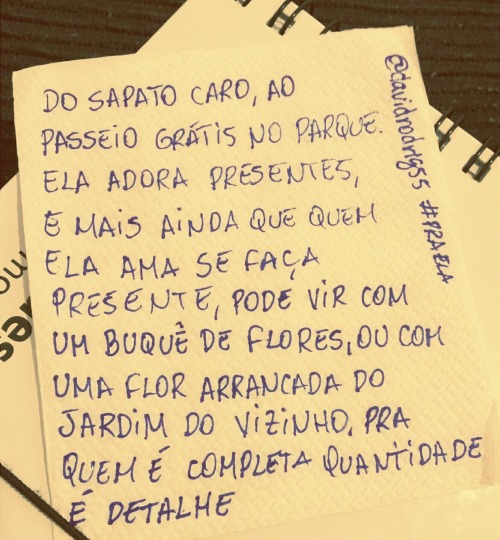 DO SAPATO CARO, AO
PASSEIO GRÁTIS NO PARQUE.
ELA ADORA PRESENTES,
E MAIS AINDA QUE QUEM
ELA AMA SE FAÇA
PRESENTE, PODE VIR COM
UM BUQUÊ DE FLORES, OU COM
UMA FLOR ARRANCADA DO
JARDIM DO VIZINHO, PRA
QUEM É COMPLETA QUANTIDADE
É DETALHE
@davidrodrigss #PRAELA